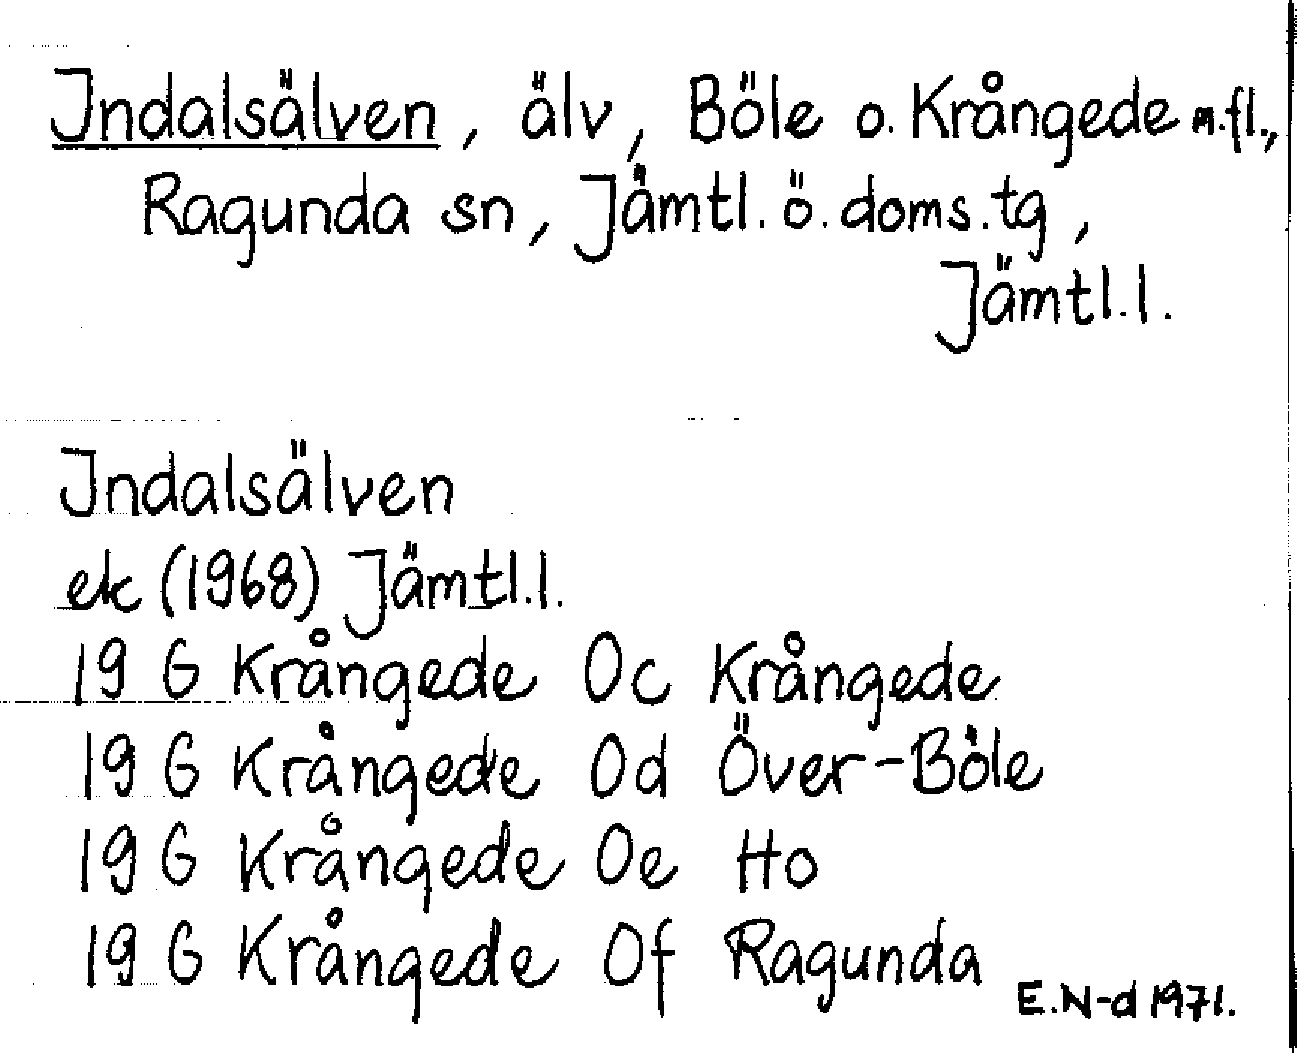 Indalsälven, älv, Böle o. Krångede m.fl.,
Ragunda sn, Jämtl. ö. doms. tg,
Jämtl. l.
Indalsälven
ek (1968) Jämtl. l.
19 G Krångede Oc Krångede
19 G Krångede Od Över-Böle
19 G Krångede Oe Ho
19 G Krångede Of Ragunda
E.N-d 1971.